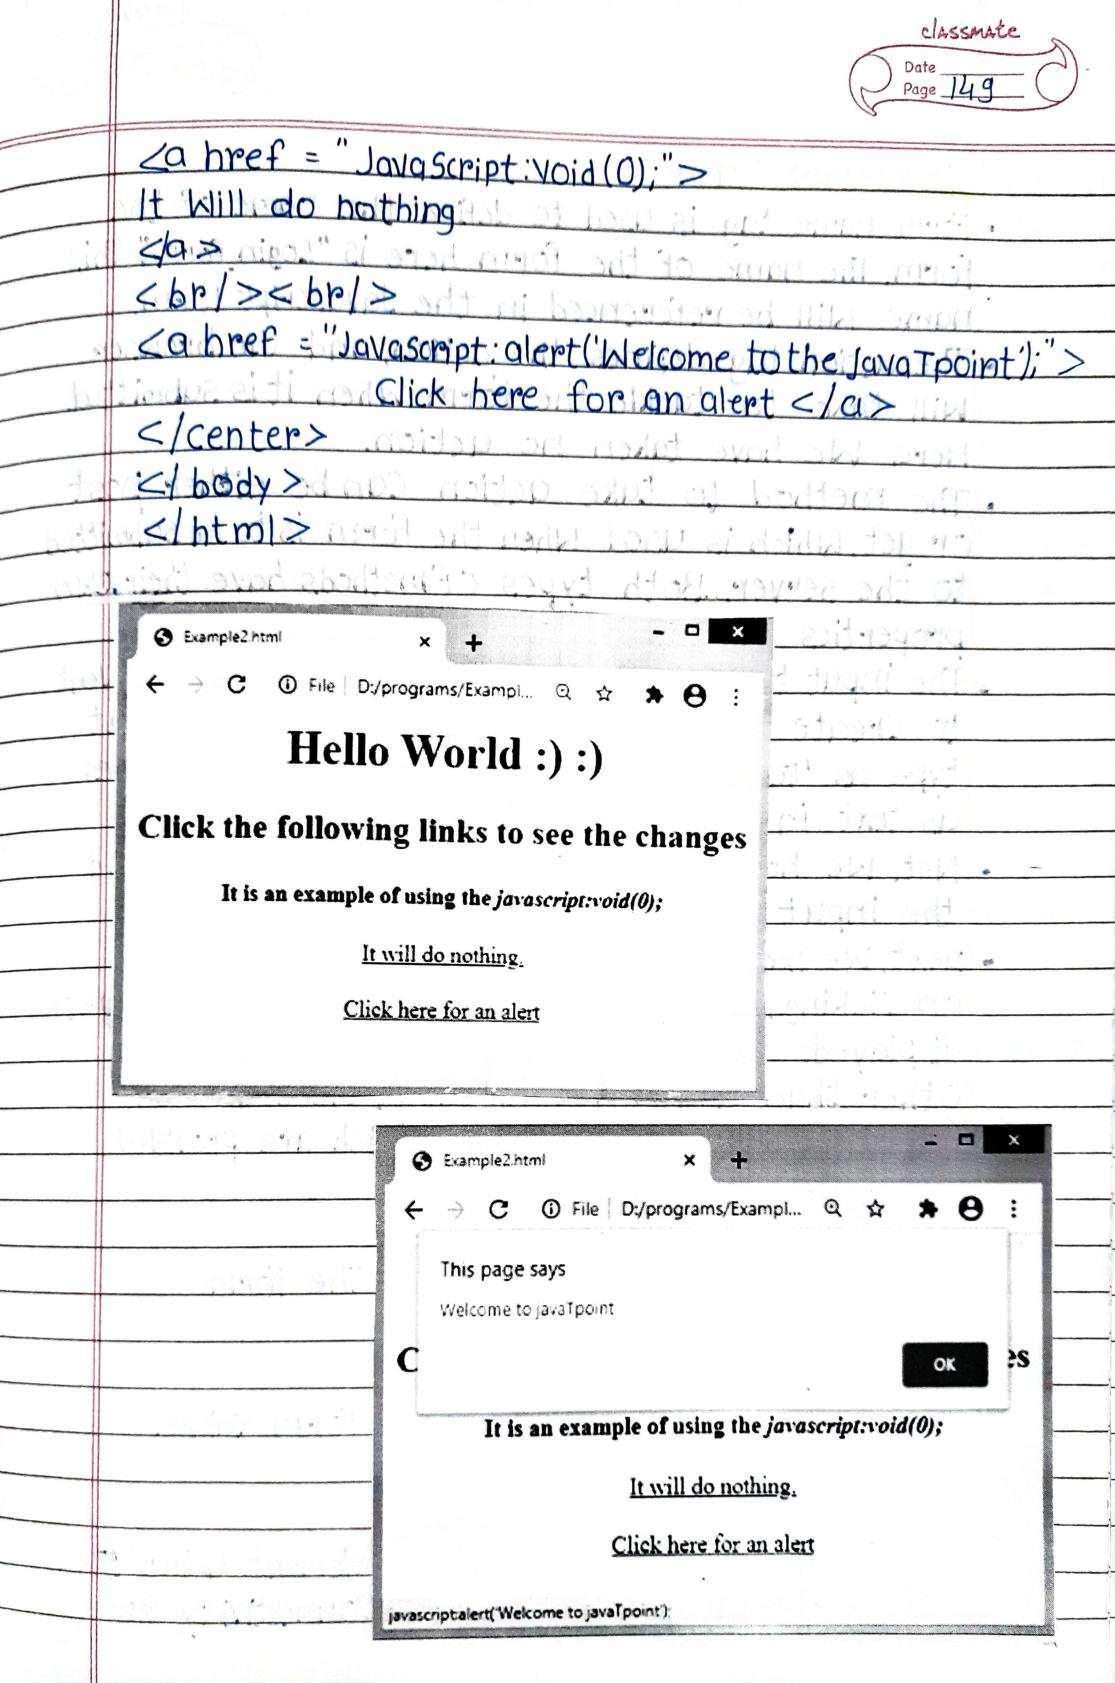 classmate
Date
Page 149
<a href = "JavaScript:void(0);">
It Will do nothing
</a>
<br/><br/>
<a href = "Javascript:alert('Welcome to the JavaTpoint');">
Click here for an alert </a>
</center>
</body>
</html>
Example2.html
File D:/programs/Exampl...
Hello World :) :)
Click the following links to see the changes
It is an example of using the javascript:void(0);
It will do nothing.
Click here for an alert
Example2.html
File D:/programs/Exampl...
This page says
Welcome to javaTpoint
C
OK
es
It is an example of using the javascript:void(0);
It will do nothing.
Click here for an alert
javascript:alert('Welcome to javaTpoint');